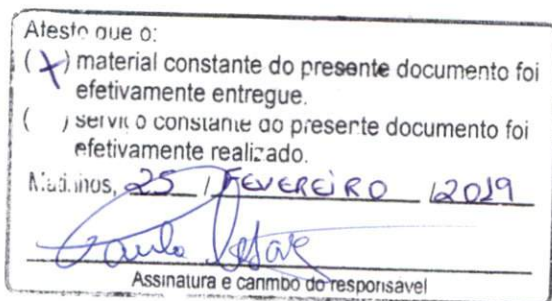 Atesto que o:
(X) material constante do presente documento foi
efetivamente entregue.
( ) serviço constante do presente documento foi
efetivamente realizado.
Matinhos, 25 / FEVEREIRO / 2019
Paulo Cesar
Assinatura e carimbo do responsável